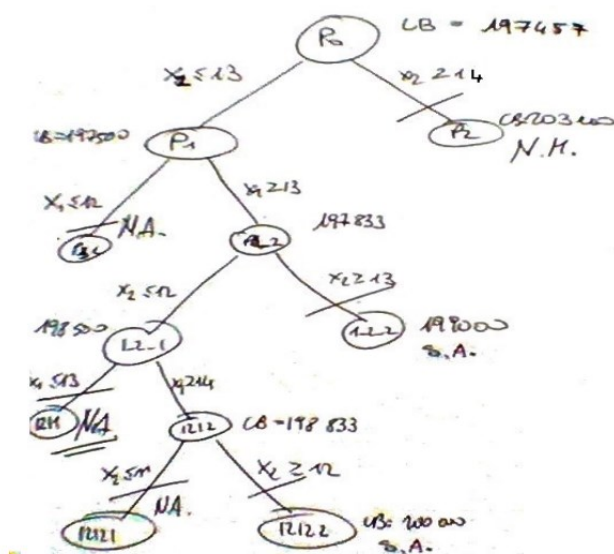 P0 LB = 197457
x2 ≤ 13 x2 ≥ 14
LB=197500 P1 P2 LB=203200
N.M.
x1 ≤ 12 N.A. x1 ≥ 13
197833
x2 ≤ 12 x2 ≥ 13
198500 1-2-1 1-2-2 199000
S.A.
x1 ≤ 13 x1 ≥ 14
1211 NA 1212 LB = 198 833
x2 ≤ 11 NA. x2 ≥ 12
12121 12122 LB= 200 000
S.A.